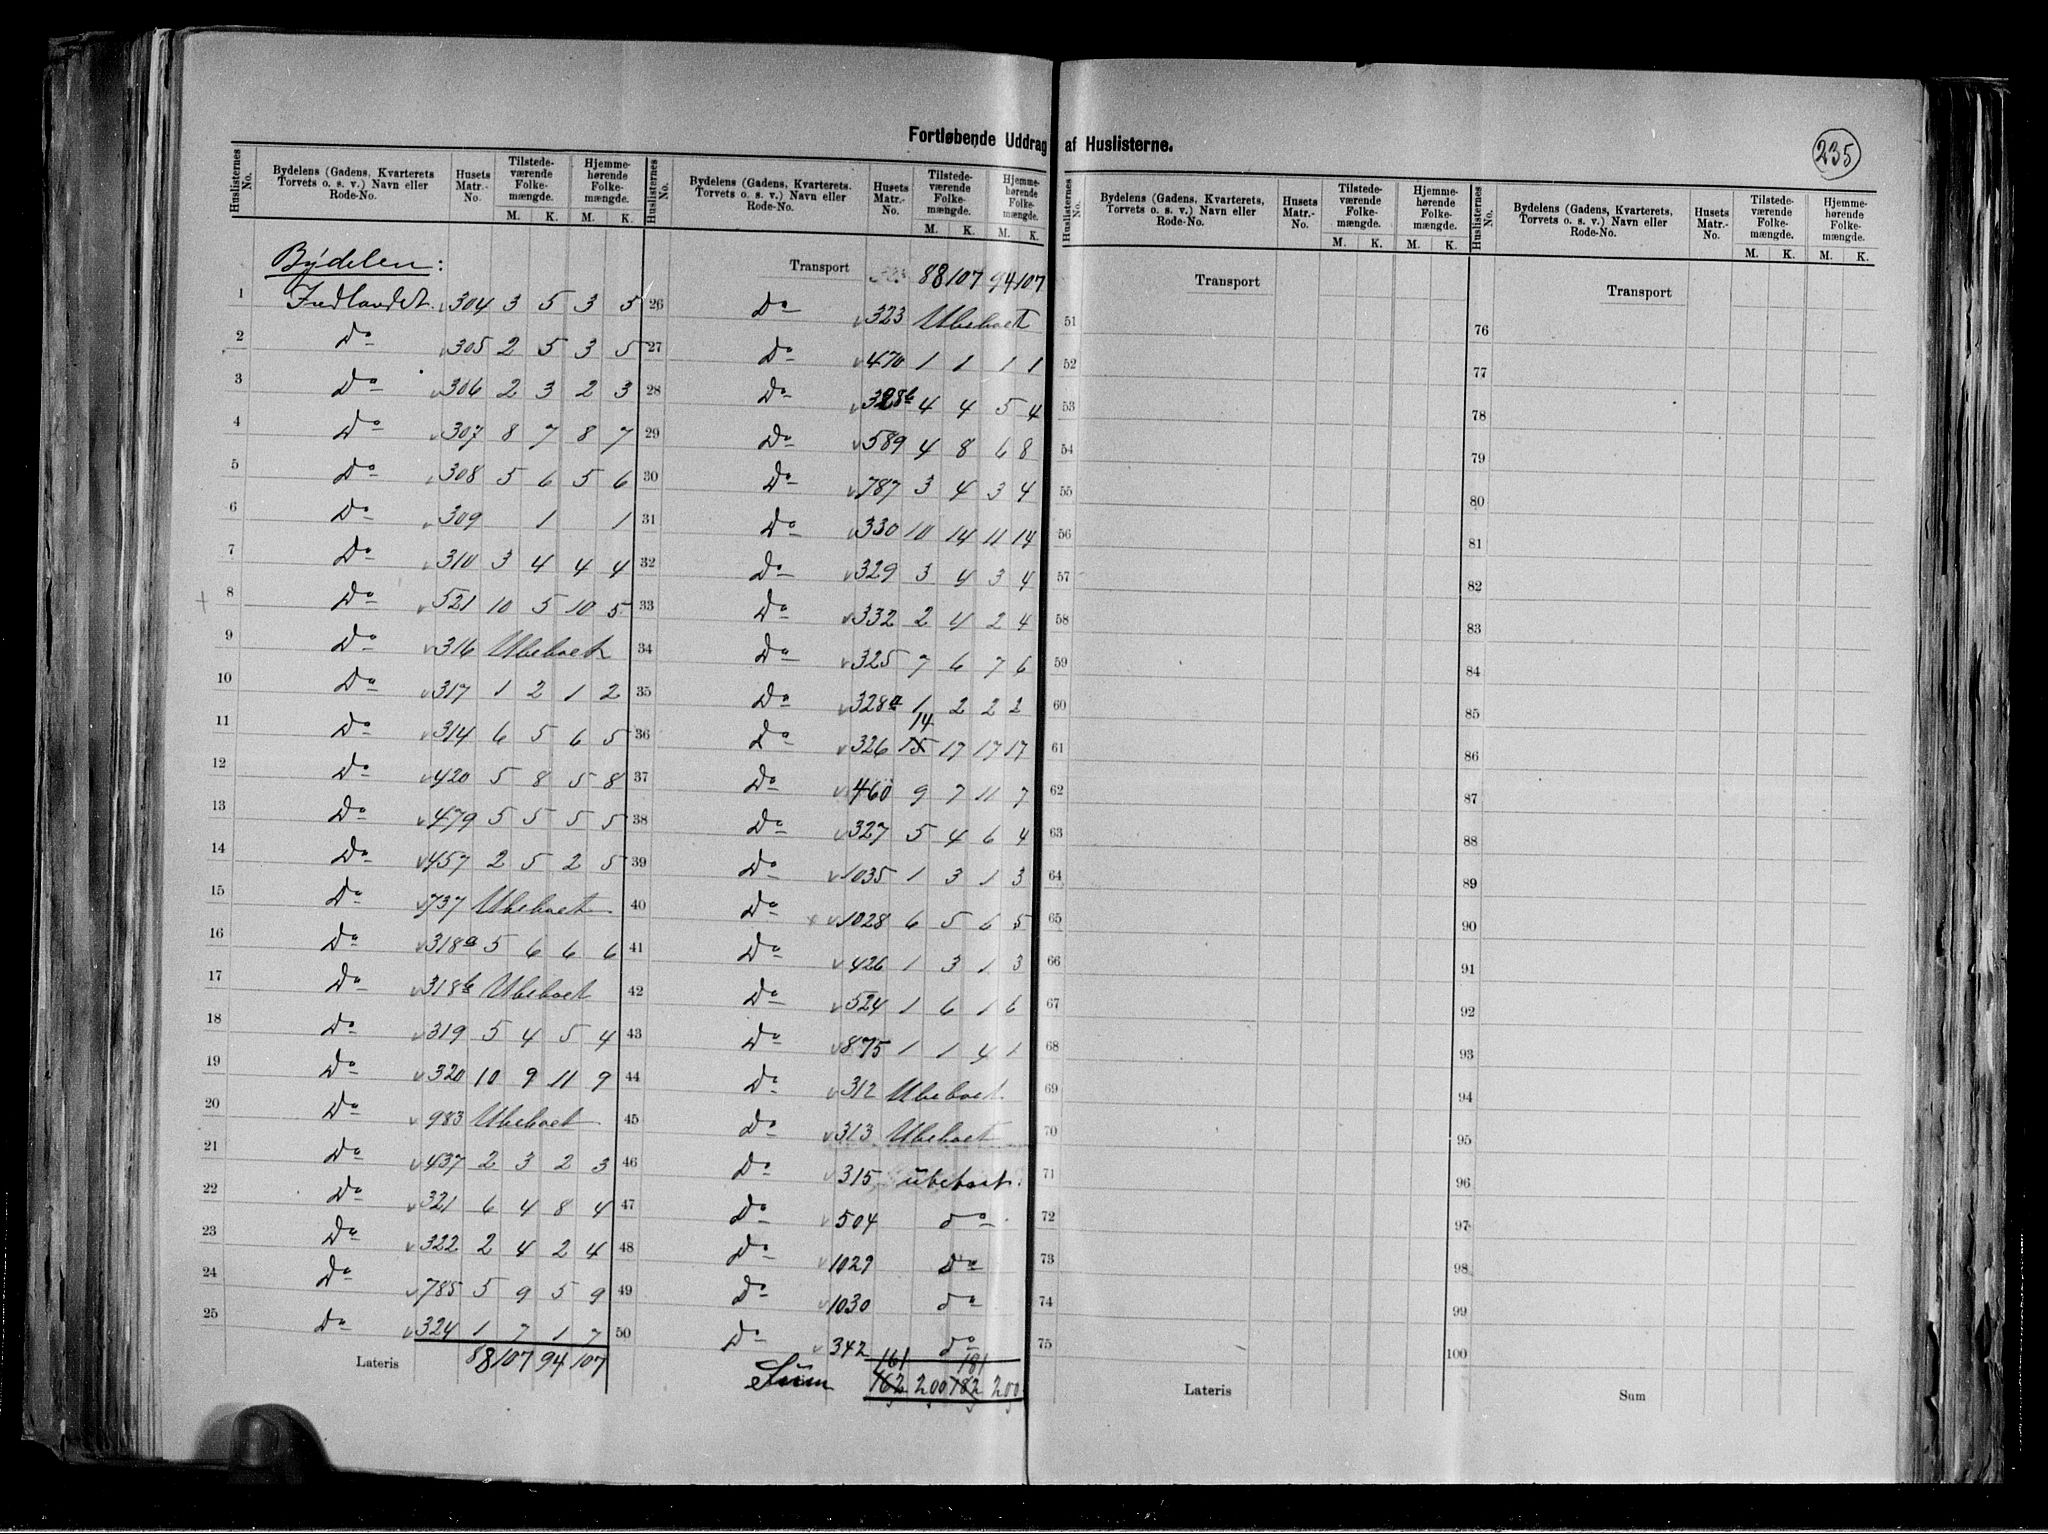 Fortløbende Uddrag af Huslisterne.
235
Huslisternes No. Bydelens (Gadens, Kvarterets Torvets o. s. v.) Navn eller Rode-No. Husets Matr.-No. Tilstede-værende Folke-mængde. M. K. Hjemme-hørende Folke-mængde. M. K.
Bydelen:
1 Indlandet 304 3 5 3 5
2 Do 305 2 5 3 5
3 Do 306 2 3 2 3
4 Do 307 8 7 8 7
5 Do 308 5 6 5 6
6 Do 309 1 1
7 Do 310 3 4 4 4
8 Do 521 10 5 10 5
9 Do 316 Ubeboet
10 Do 317 1 2 1 2
11 Do 314 6 5 6 5
12 Do 420 5 8 5 8
13 Do 479 5 5 5 5
14 Do 457 2 5 2 5
15 Do 737 Ubeboet
16 Do 318a 5 6 6 6
17 Do 318b Ubeboet
18 Do 319 5 4 5 4
19 Do 320 10 9 11 9
20 Do 983 Ubeboet
21 Do 437 2 3 2 3
22 Do 321 6 4 8 4
23 Do 322 2 4 2 4
24 Do 785 5 9 5 9
25 Do 324 1 7 1 7
Lateris 88 107 94 107
Huslisternes No. Bydelens (Gadens, Kvarterets. Torvets o. s. v.) Navn eller Rode-No. Husets Matr.-No. Tilstede-værende Folke-mængde. M. K. Hjemme-hørende Folke-mængde. M. K.
Transport 88 107 94 107
26 Do 323 Ubeboet
27 Do 470 1 1 1 1
28 Do 328b 4 4 5 4
29 Do 589 4 8 6 8
30 Do 787 3 4 3 4
31 Do 330 10 14 11 14
32 Do 329 3 4 3 4
33 Do 332 2 4 2 4
34 Do 325 7 6 7 6
35 Do 328a 1 2 2 2
14
36 Do 326 15 17 17 17
37 Do 460 9 7 11 7
38 Do 327 5 4 6 4
39 Do 1035 1 3 1 3
40 Do 1028 6 5 6 5
41 Do 426 1 3 1 3
42 Do 524 1 6 1 6
43 Do 875 1 1 4 1
44 Do 312 Ubeboet
45 Do 313 Ubeboet
46 Do 315 ubeboet
47 Do 504 do
48 Do 1029 Do
49 Do 1030 do
50 Do 342 do
161 181
Sum 162 200 182 200
Huslisternes No. Bydelens (Gadens, Kvarterets Torvets o. s. v.) Navn eller Rode-No. Husets Matr.-No. Tilstede-værende Folke-mængde. M. K. Hjemme-hørende Folke-mængde. M. K.
Transport
51
52
53
54
55
56
57
58
59
60
61
62
63
64
65
66
67
68
69
70
71
72
73
74
75
Lateris
Huslisternes No. Bydelens (Gadens, Kvarterets, Torvets o. s. v.) Navn eller Rode-No. Husets Matr.-No. Tilstede-værende Folke-mængde. M. K. Hjemme-hørende Folke-mængde. M. K.
Transport
76
77
78
79
80
81
82
83
84
85
86
87
88
89
90
91
92
93
94
95
96
97
98
99
100
Sum